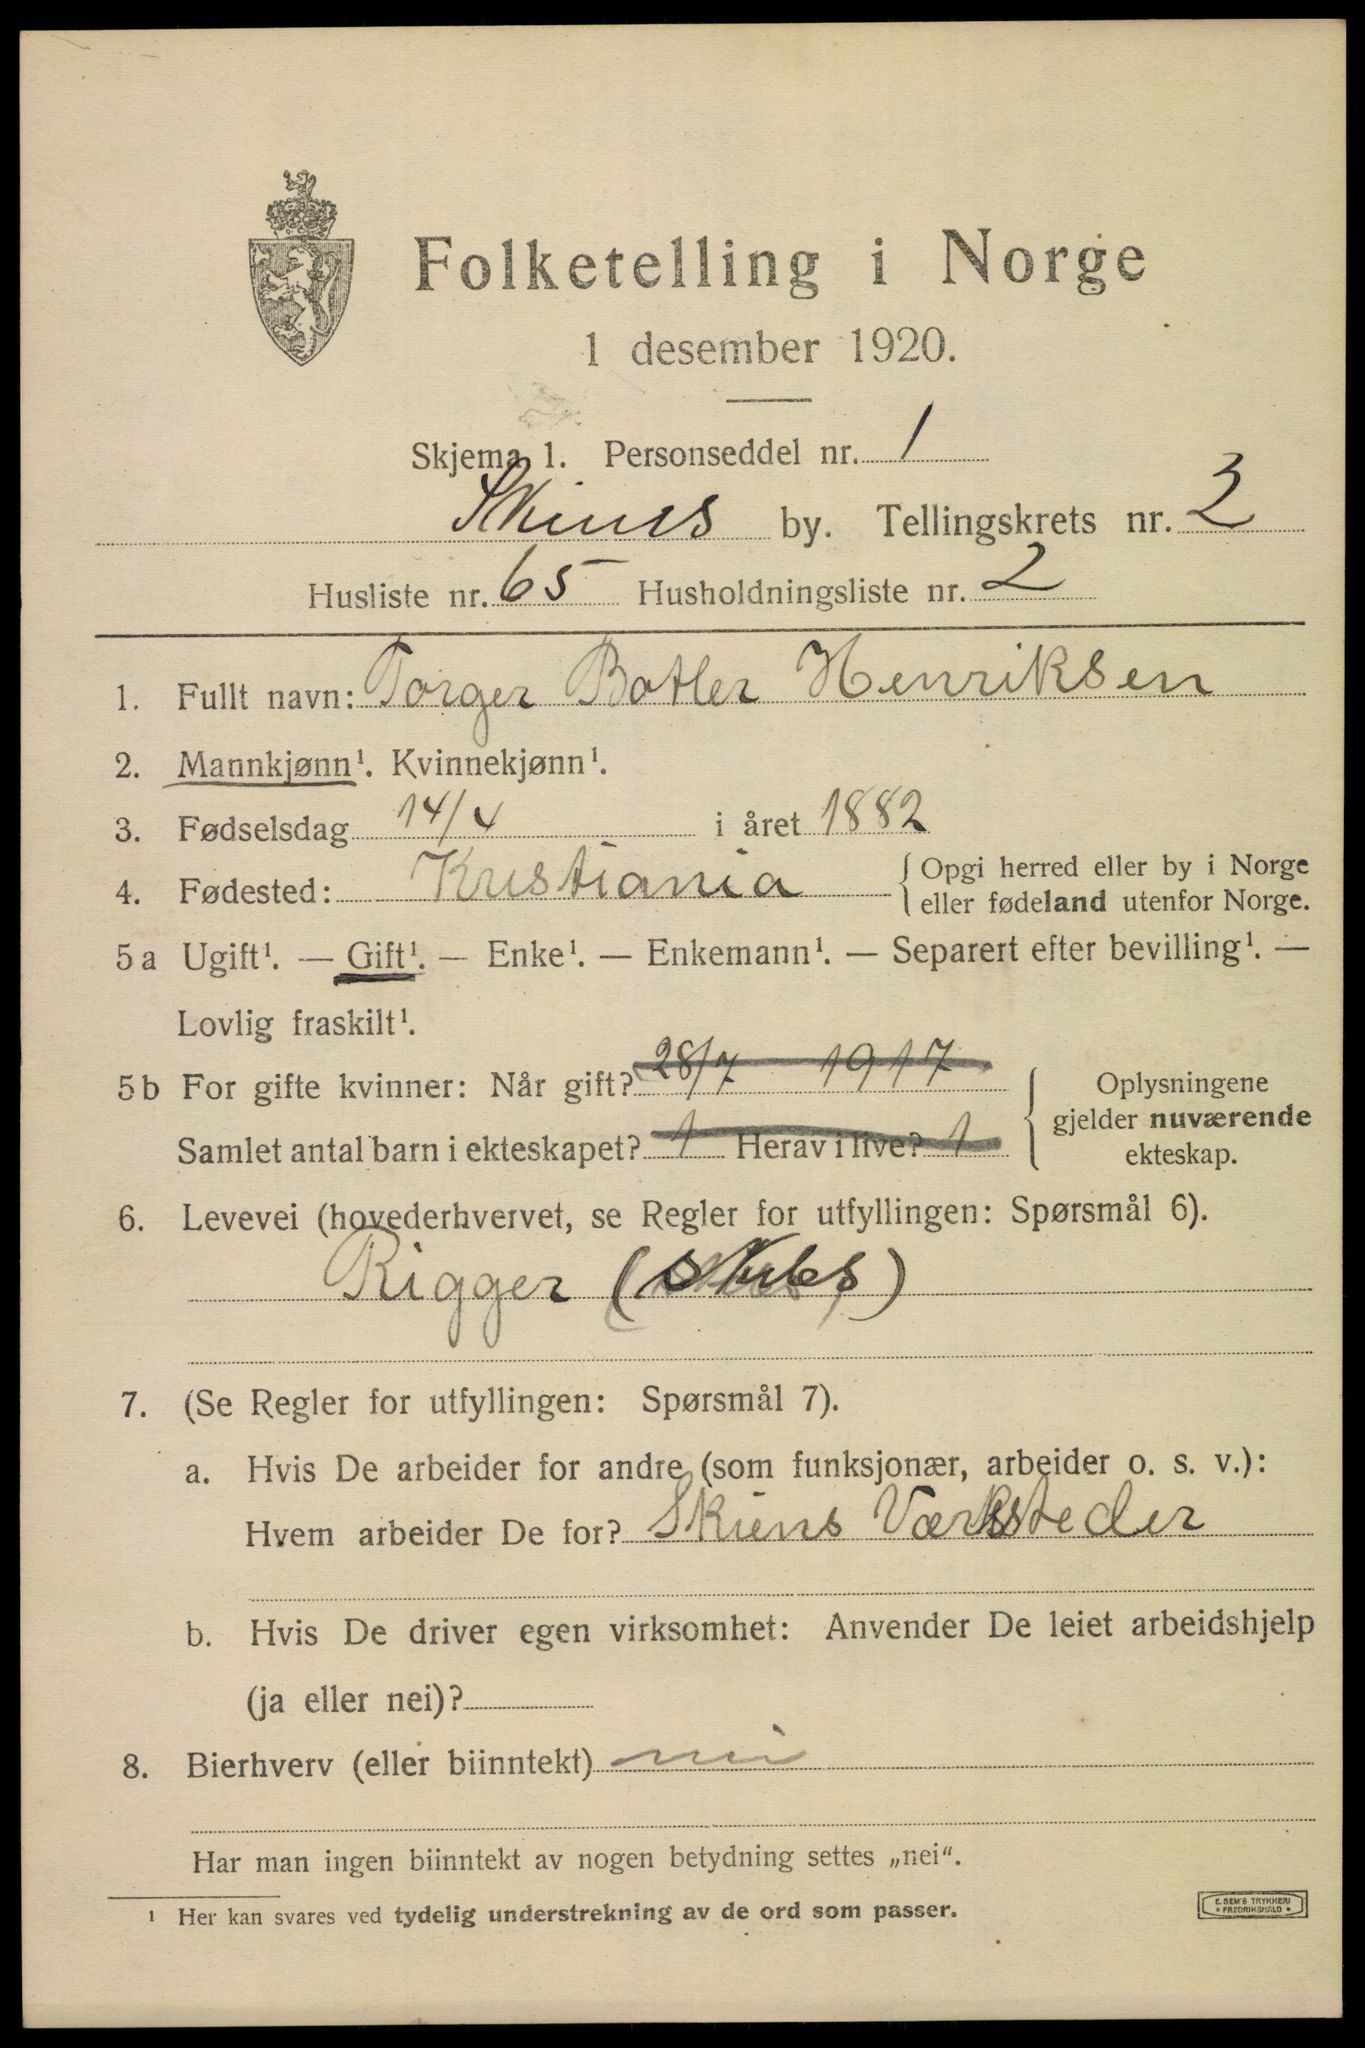 Folketelling i Norge
1 desember 1920.
Skjema 1. Personseddel nr. 1
Skiens by. Tellingskrets nr. 3
Husliste nr. 65 Husholdningsliste nr. 2
1. Fullt navn: Torger Botler Henriksen
2. Mannkjønn¹. Kvinnekjønn¹.
3. Fødselsdag 14/4 i året 1882
4. Fødested: Kristiania {Opgi herred eller by i Norge
eller fødeland utenfor Norge.
5a Ugift¹. — Gift¹. — Enke¹. — Enkemann¹. — Separert efter bevilling¹. —
Lovlig fraskilt¹.
5b For gifte kvinner: Når gift? 28/7 1917
Samlet antal barn i ekteskapet? 1 Herav i live? 1
Oplysningene
gjelder nuværende
ekteskap.
6. Levevei (hovederhvervet, se Regler for utfyllingen: Spørsmål 6).
Rigger (skibs)
7. (Se Regler for utfyllingen: Spørsmål 7).
a. Hvis De arbeider for andre (som funksjonær, arbeider o. s. v.):
Hvem arbeider De for? Skiens Værksteder
b. Hvis De driver egen virksomhet: Anvender De leiet arbeidshjelp
(ja eller nei)?
8. Bierhverv (eller biinntekt) nei
Har man ingen biinntekt av nogen betydning settes „nei“.
¹ Her kan svares ved tydelig understrekning av de ord som passer.
E. SEM'S TRYKKERI
FREDRIKSHALD